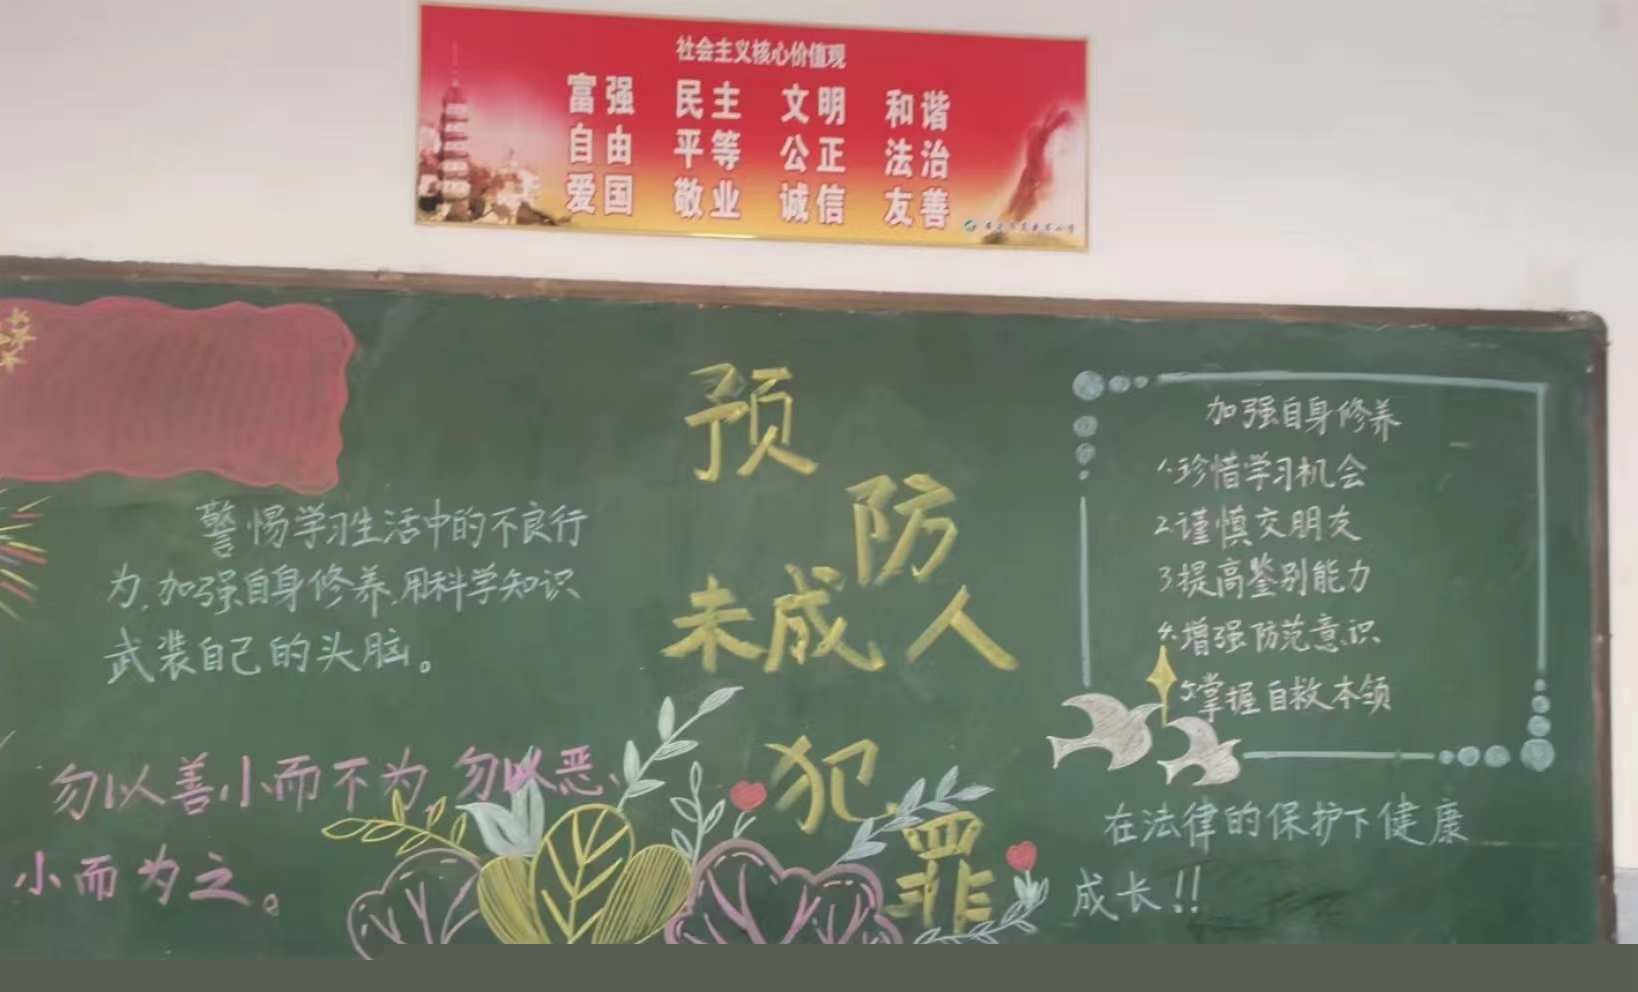 社会主义核心价值观
富强 民主 文明 和谐
自由 平等 公正 法治
爱国 敬业 诚信 友善
警惕学习生活中的不良行
为,加强自身修养,用科学知识
武装自己的头脑。
勿以善小而不为,勿以恶
小而为之。
预
防
未成人
犯
罪
加强自身修养
1.珍惜学习机会
2.谨慎交朋友
3提高鉴别能力
4.增强防范意识
5掌握自救本领
在法律的保护下健康
成长!!